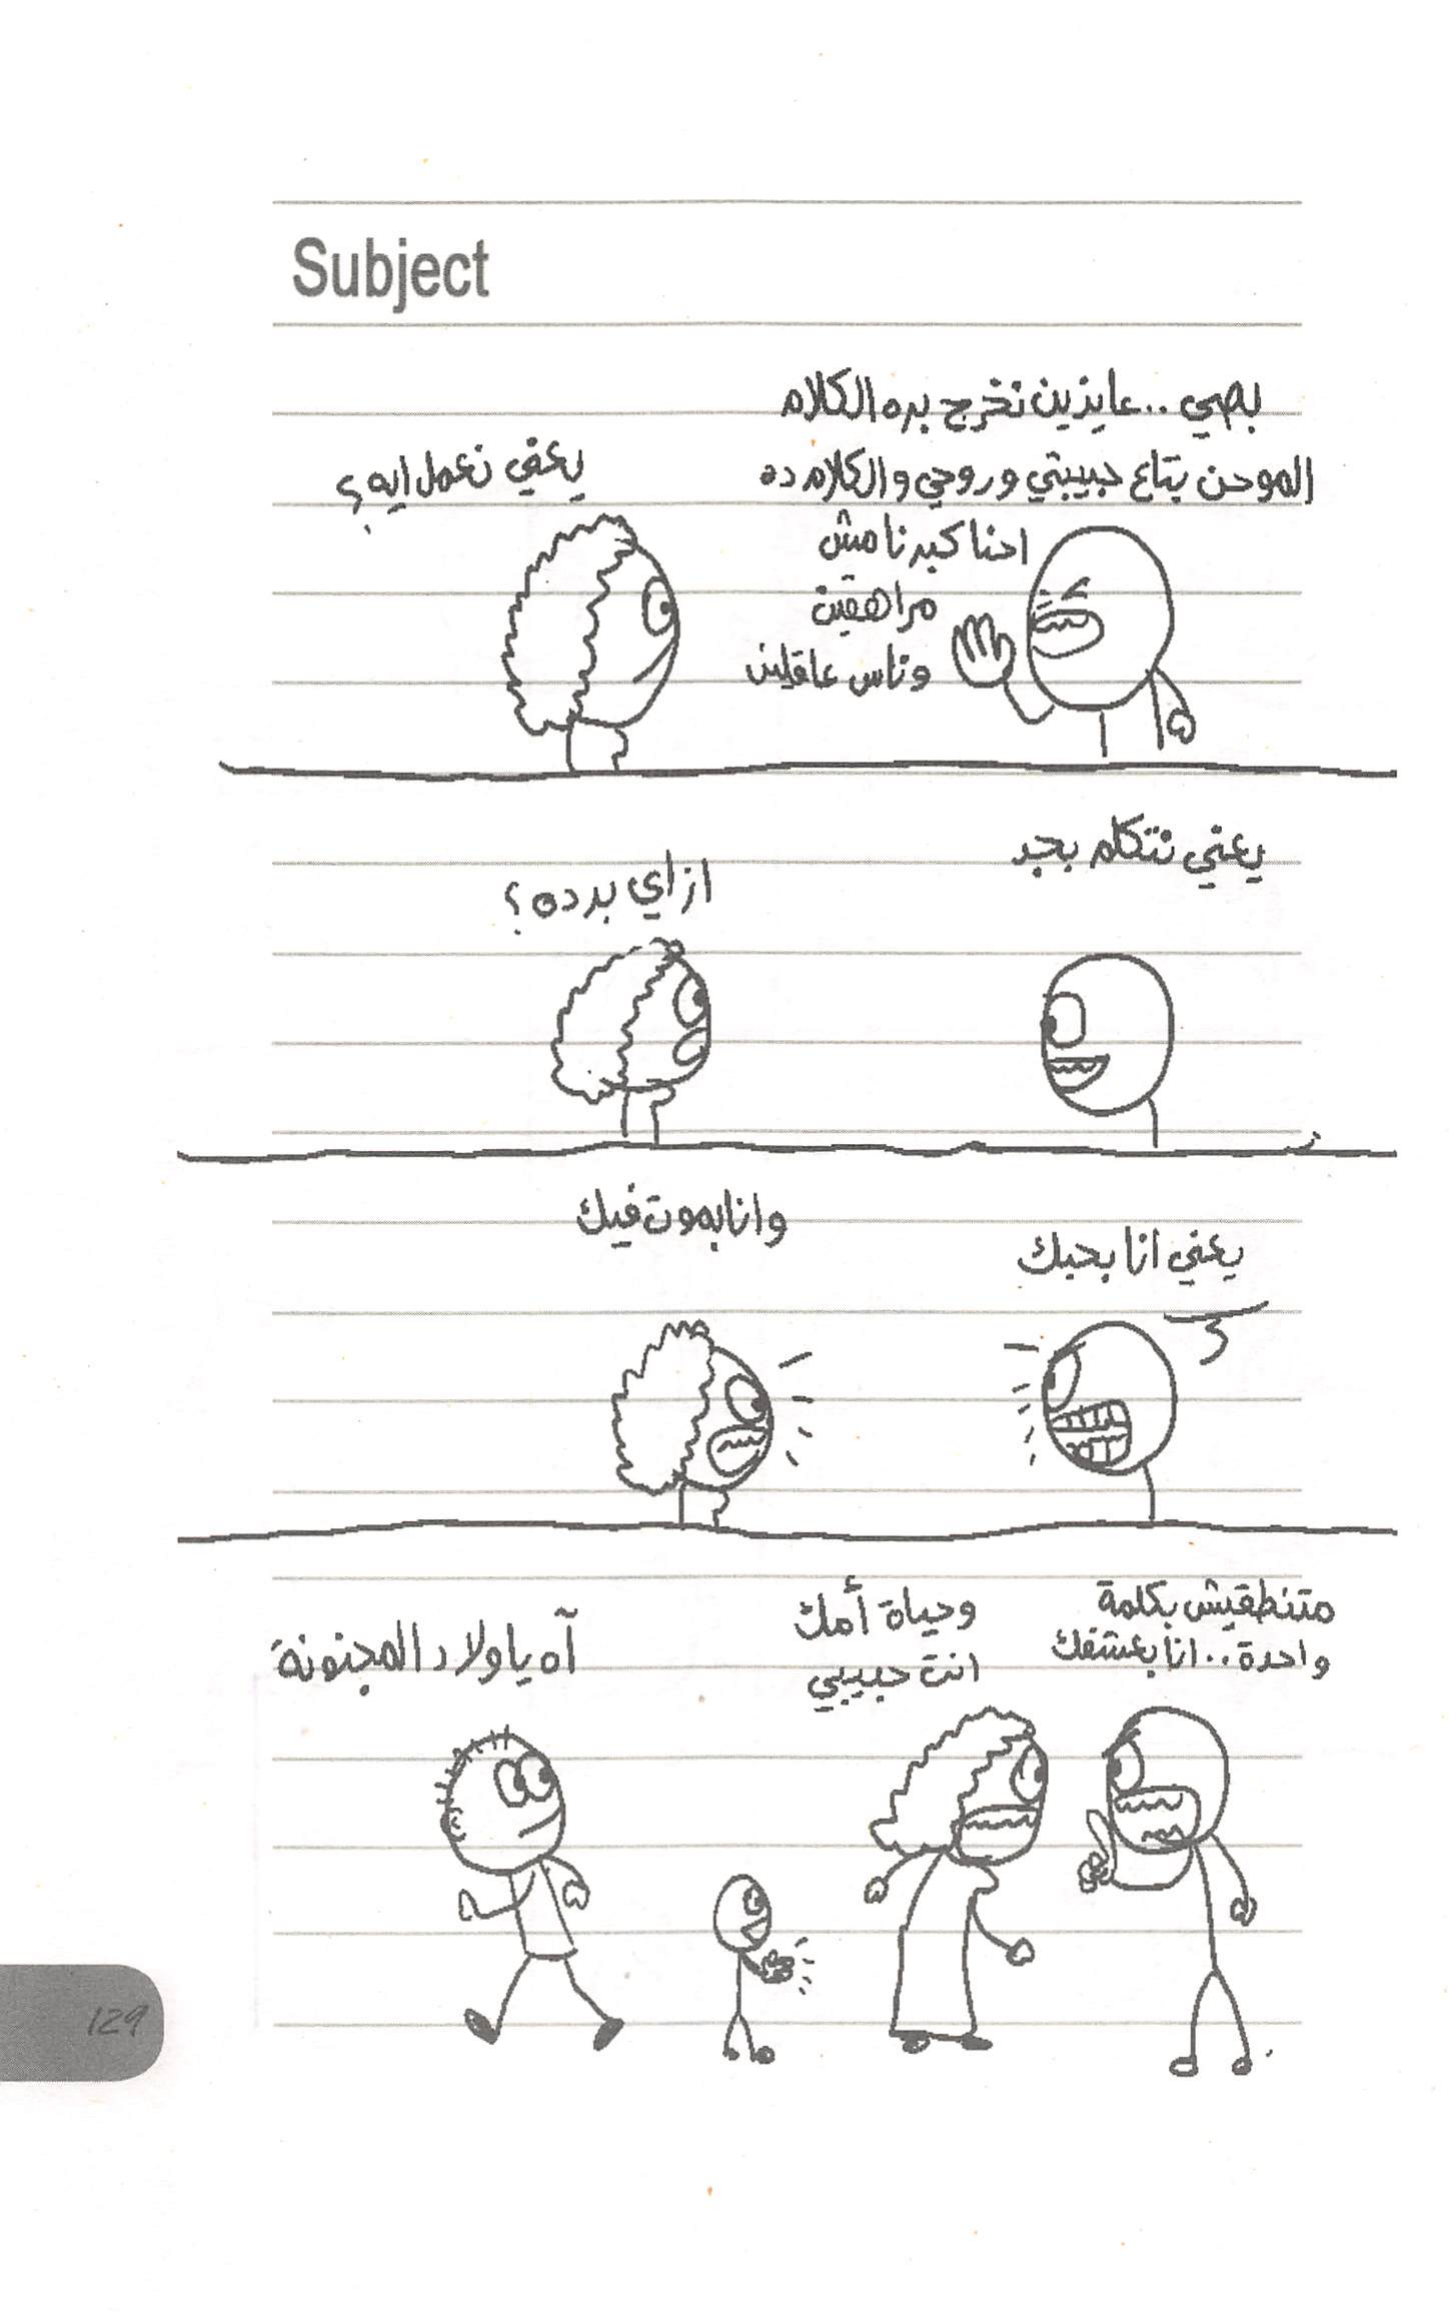 Subject
بصي..عايزين نخرج بره الكلام
المومحن بتاع حبيبتي وروحي والكلام ده
احنا كبرنا مش
مراهقين
وناس عاقلين
يعني نعمل ايه؟
يعني نتكلم بجد
ازاي برده؟
يعني انا بحبك
وانا بموت فيك
متنطقيش بكلمة
واحدة..انا بعشقك
وحياة أمك
انت حبيبي
آه يا ولاد المجنونة
129